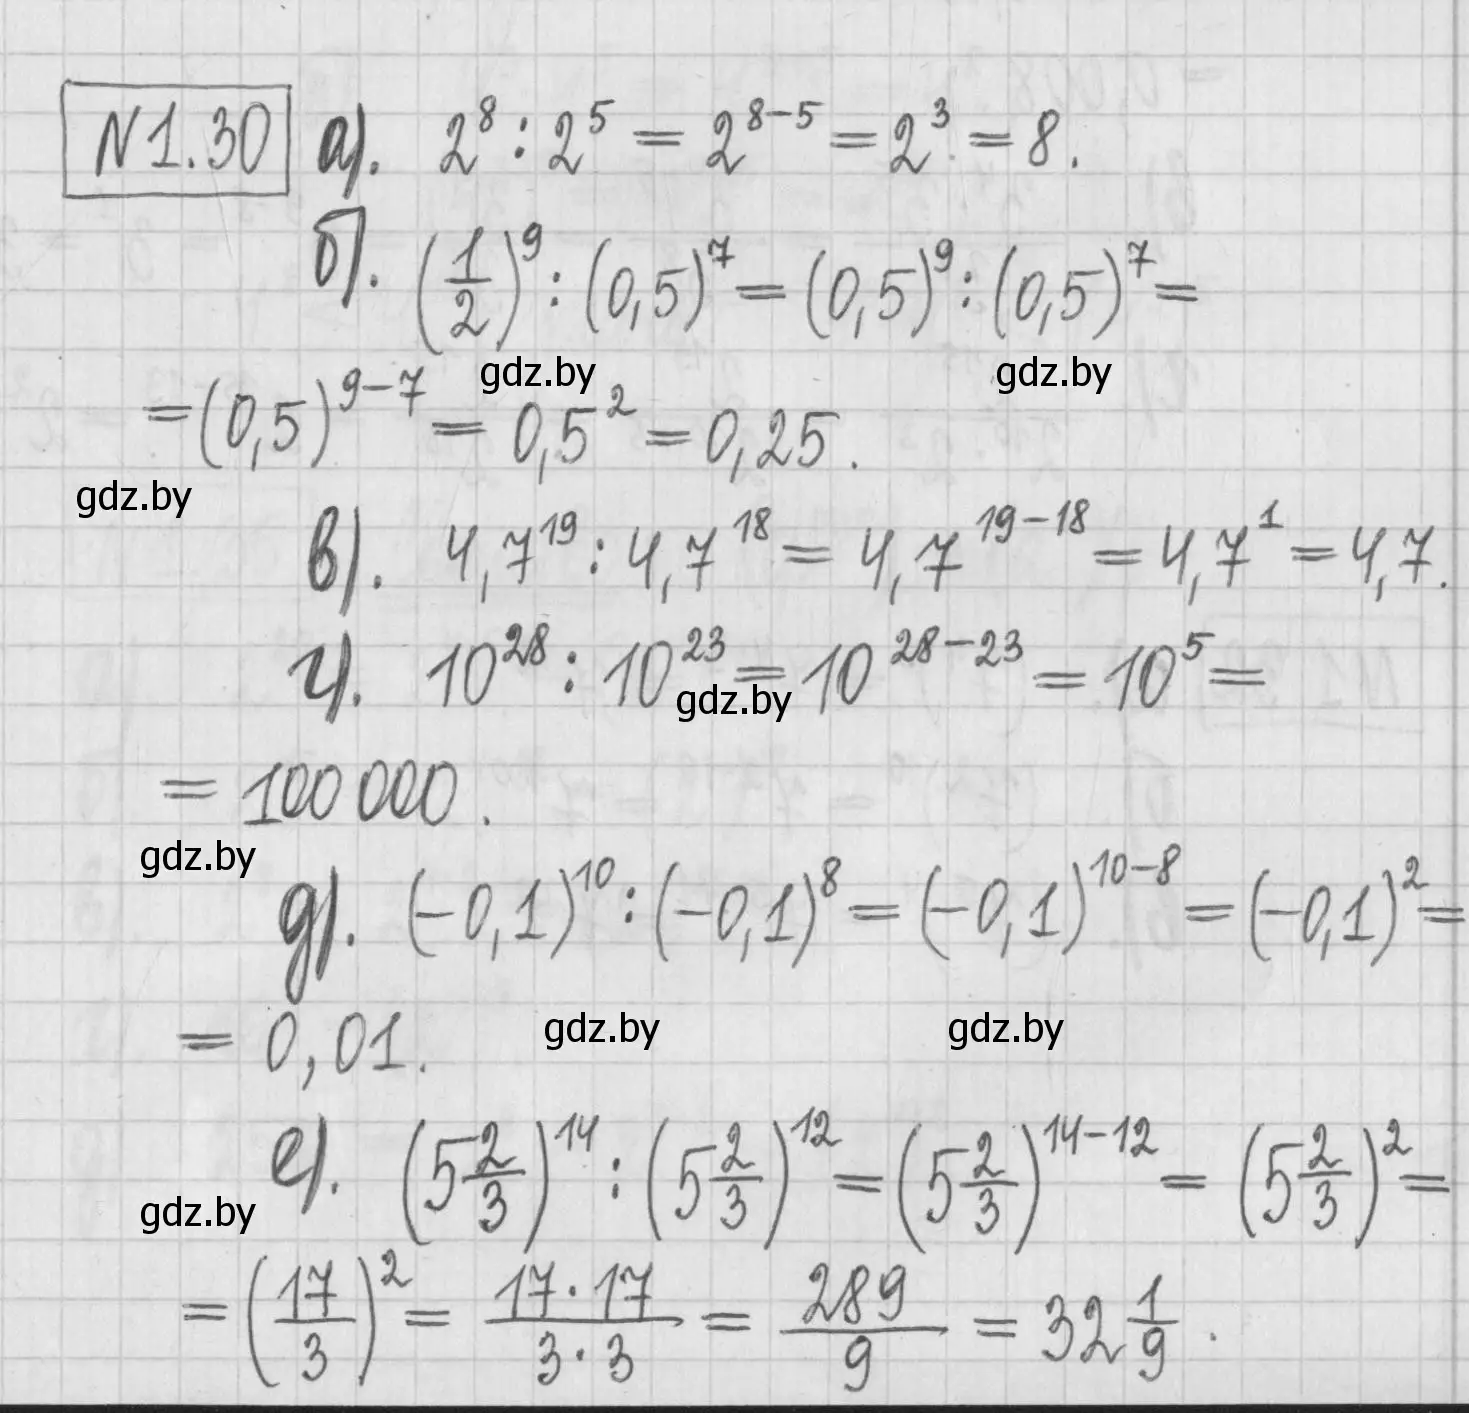 N 1.30 а). 2^8 : 2^5 = 2^{8-5} = 2^3 = 8.
б). (1/2)^9 : (0,5)^7 = (0,5)^9 : (0,5)^7 =
gdz.by gdz.by
= (0,5)^{9-7} = 0,5^2 = 0,25.
gdz.by
в). 4,7^{19} : 4,7^{18} = 4,7^{19-18} = 4,7^1 = 4,7.
г). 10^{28} : 10^{23} = 10^{28-23} = 10^5 =
gdz.by
= 100 000.
gdz.by
д). (-0,1)^{10} : (-0,1)^8 = (-0,1)^{10-8} = (-0,1)^2 =
= 0,01.
gdz.by gdz.by
е). (5 2/3)^{14} : (5 2/3)^{12} = (5 2/3)^{14-12} = (5 2/3)^2 =
gdz.by
= (17/3)^2 = 17·17/3·3 = 289/9 = 32 1/9.